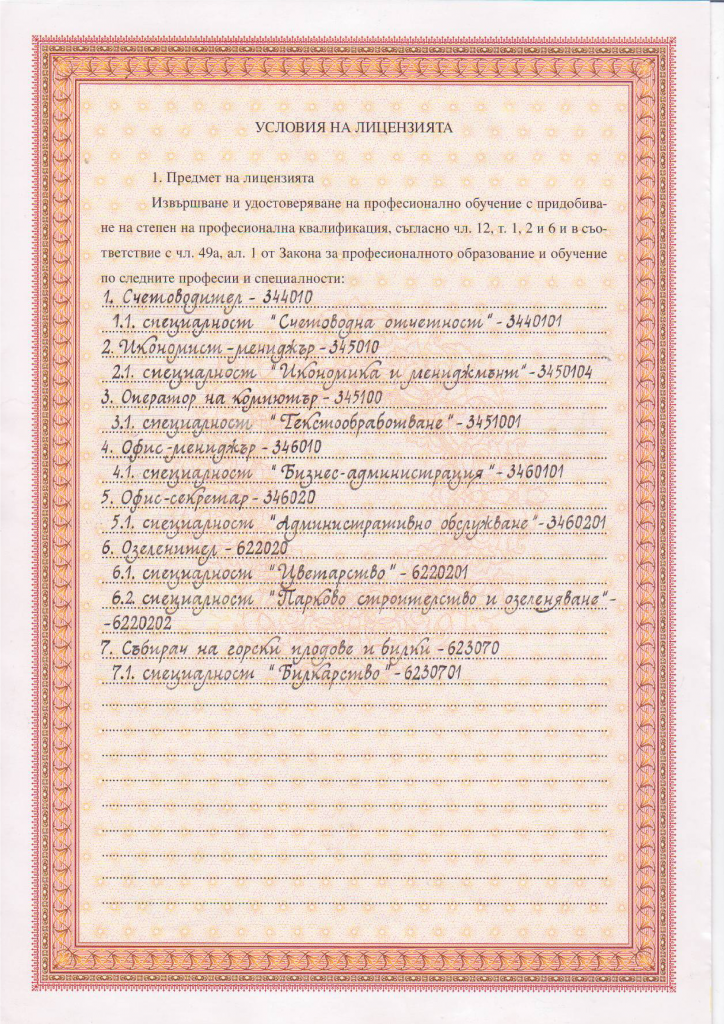 УСЛОВИЯ НА ЛИЦЕНЗИЯТА
1. Предмет на лицензията
Извършване и удостоверяване на професионално обучение с придобива-
не на степен на професионална квалификация, съгласно чл. 12, т. 1, 2 и 6 и в съо-
тветствие с чл. 49а, ал. 1 от Закона за професионалното образование и обучение
по следните професии и специалности:
1. Счетоводител - 344010
1.1. специалност "Счетоводна отчетност" - 3440101
2. Икономист-мениджър - 345010
2.1. специалност "Икономика и мениджмънт" - 3450104
3. Оператор на компютър - 345100
3.1. специалност "Текстообработване" - 3451001
4. Офис-мениджър - 346010
4.1. специалност "Бизнес-администрация" - 3460101
5. Офис-секретар - 346020
5.1. специалност "Административно обслужване" - 3460201
6. Озеленител - 622020
6.1. специалност "Цветарство" - 6220201
6.2. специалност "Парково строителство и озеленяване" -
- 6220202
7. Събирач на горски плодове и билки - 623070
7.1. специалност "Билкарство" - 6230701